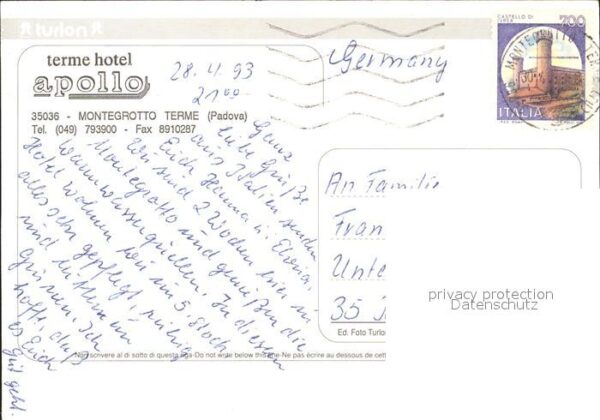 turlon
terme hotel
apollo
35036 - MONTEGROTTO TERME (Padova)
Tel. (049) 793900 - Fax 8910287
28.4.93
21⁰⁰
Germany
CASTELLO DI
700
MONTEGROTTO TERME
ITALIA
Ganz
liebe Grüße
aus Italien senden
Euch Hanna u.
Wir sind 2 Wochen hier in
Montegrotto und genießen die
Warmwasserquellen. In diesem
Hotel wohnen wir im 5. Stock
alles sehr gepflegt, ruhig
und mitten im
Grünen. Ich
hoffe, daß
es Euch
gut geht.
An Familie
Fran
Unte
35
privacy protection
Datenschutz
Ed. Foto Turlon
Non scrivere al di sotto di questa riga-Do not write below this line-Ne pas écrire au dessous de cette